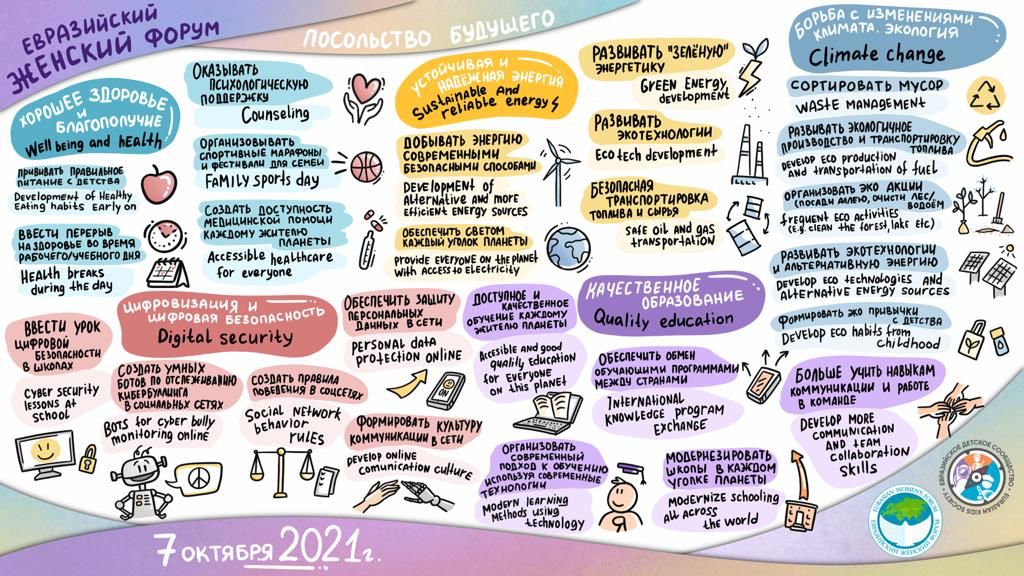 ЕВРАЗИЙСКИЙ
ЖЕНСКИЙ ФОРУМ
ПОСОЛЬСТВО БУДУЩЕГО
ХОРОШЕЕ ЗДОРОВЬЕ
И
БЛАГОПОЛУЧИЕ
Well being and health
ПРИВИВАТЬ ПРАВИЛЬНОЕ
ПИТАНИЕ С ДЕТСТВА
Development of Healthy
Eating habits Early on
ВВЕСТИ ПЕРЕРЫВ
НА ЗДОРОВЬЕ ВО ВРЕМЯ
РАБОЧЕГО/УЧЕБНОГО ДНЯ
Health breaks
during the day
ОКАЗЫВАТЬ
ПСИХОЛОГИЧЕСКУЮ
ПОДДЕРЖКУ
Counseling
ОРГАНИЗОВЫВАТЬ
СПОРТИВНЫЕ МАРАФОНЫ
И ФЕСТИВАЛИ ДЛЯ СЕМЕЙ
FAMILY sports day
СОЗДАТЬ ДОСТУПНОСТЬ
МЕДИЦИНСКОЙ ПОМОЩИ
КАЖДОМУ ЖИТЕЛЮ
ПЛАНЕТЫ
Accessible healthcare
for everyone
УСТОЙЧИВАЯ И
НАДЁЖНАЯ ЭНЕРГИЯ
Sustainable And
reliable energy
ДОБЫВАТЬ ЭНЕРГИЮ
СОВРЕМЕННЫМИ
БЕЗОПАСНЫМИ СПОСОБАМИ
DEVELOPMENT of
Alternative and more
efficient ENERGY sources
ОБЕСПЕЧИТЬ СВЕТОМ
КАЖДЫЙ УГОЛОК ПЛАНЕТЫ
PROVIDE EVERYONE ON the PLANET
With ACCESS to ELECTRICITY
РАЗВИВАТЬ "ЗЕЛЁНУЮ"
ЭНЕРГЕТИКУ
Green Energy
development
РАЗВИВАТЬ
ЭКОТЕХНОЛОГИИ
Eco tech development
БЕЗОПАСНАЯ
ТРАНСПОРТИРОВКА
ТОПЛИВА И СЫРЬЯ
safe oil and gas
transportation
БОРЬБА С ИЗМЕНЕНИЯМИ
КЛИМАТА. ЭКОЛОГИЯ
Climate change
СОРТИРОВАТЬ МУСОР
WASTE MANAGEMENT
РАЗВИВАТЬ ЭКОЛОГИЧНОЕ
ПРОИЗВОДСТВО И ТРАНСПОРТИРОВКУ
ТОПЛИВА
DEVELOP ECO production
and transportation of fuel
ОРГАНИЗОВАТЬ ЭКО АКЦИИ
(ПОСАДИ АЛЛЕЮ, ОЧИСТИ ЛЕС/
ВОДОЁМ
frequent Eco activities
(e.g. clean the forest, lake etc)
РАЗВИВАТЬ ЭКОТЕХНОЛОГИИ
И АЛЬТЕРНАТИВНУЮ ЭНЕРГИЮ
DEVELOP ECO technologies and
alternative Energy sources
ФОРМИРОВАТЬ ЭКО ПРИВЫЧКИ
С ДЕТСТВА
DEVELOP ECO habits from
childhood
ЦИФРОВИЗАЦИЯ И
ЦИФРОВАЯ БЕЗОПАСНОСТЬ
Digital security
ВВЕСТИ УРОК
ЦИФРОВОЙ
БЕЗОПАСНОСТИ
В ШКОЛАХ
CYBER SECURITY
lessons At
school
СОЗДАТЬ УМНЫХ
БОТОВ ПО ОТСЛЕЖИВАНИЮ
КИБЕРБУЛЛИНГА
В СОЦИАЛЬНЫХ СЕТЯХ
Bots for cyber bully
monitoring online
СОЗДАТЬ ПРАВИЛА
ПОВЕДЕНИЯ В СОЦСЕТЯХ
Social Network
behavior
rules
ОБЕСПЕЧИТЬ ЗАЩИТУ
ПЕРСОНАЛЬНЫХ
ДАННЫХ В СЕТИ
PERSONAL DATA
PROTECTION ONLINE
ФОРМИРОВАТЬ КУЛЬТУРУ
КОММУНИКАЦИИ В СЕТИ
DEVELOP ONLINE
COMUNICATION CULTURE
КАЧЕСТВЕННОЕ
ОБРАЗОВАНИЕ
Quality education
ДОСТУПНОЕ И
КАЧЕСТВЕННОЕ
ОБУЧЕНИЕ КАЖДОМУ
ЖИТЕЛЮ ПЛАНЕТЫ
Accessible and good
quality education
for EVERYONE
on this planet
ОБЕСПЕЧИТЬ ОБМЕН
ОБУЧАЮЩИМИ ПРОГРАММАМИ
МЕЖДУ СТРАНАМИ
INTERNATIONAL
KNOWLEDGE PROGRAM
EXCHANGE
ОРГАНИЗОВАТЬ
СОВРЕМЕННЫЙ
ПОДХОД К ОБУЧЕНИЮ
ИСПОЛЬЗУЯ СОВРЕМЕННЫЕ
ТЕХНОЛОГИИ
Modern learning
Methods using
technology
Я
МОДЕРНЕЗИРОВАТЬ
ШКОЛЫ В КАЖДОМ
УГОЛКЕ ПЛАНЕТЫ
Modernize schooling
all across
the world
БОЛЬШЕ УЧИТЬ НАВЫКАМ
КОММУНИКАЦИИ И РАБОТЕ
В КОМАНДЕ
DEVELOP MORE
COMMUNICATION
AND TEAM
collaboration
skills
EURASIAN WOMEN'S FORUM
ЕВРАЗИЙСКИЙ ЖЕНСКИЙ ФОРУМ
ЕВРАЗИЙСКОЕ ДЕТСКОЕ СООБЩЕСТВО
EURASIAN KIDS SOCIETY
7 ОКТЯБРЯ 2021г.